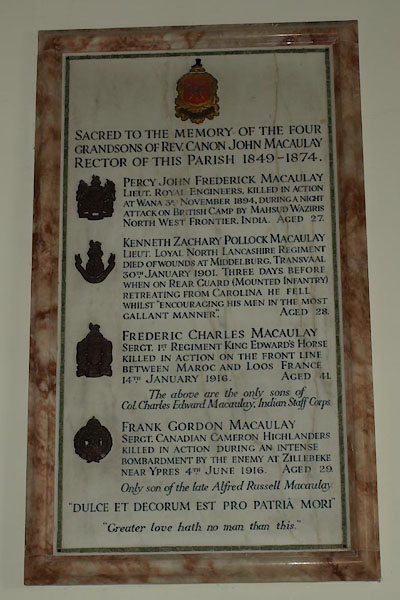 SACRED TO THE MEMORY OF THE FOUR
GRANDSONS OF REV. CANON JOHN MACAULAY
RECTOR OF THIS PARISH 1849-1874.
PERCY JOHN FREDERICK MACAULAY
LIEUT. ROYAL ENGINEERS, KILLED IN ACTION
AT WANA 3RD NOVEMBER 1894, DURING A NIGHT
ATTACK ON BRITISH CAMP BY MAHSUD WAZIRIS
NORTH WEST FRONTIER, INDIA. AGED 27.
KENNETH ZACHARY POLLOCK MACAULAY
LIEUT. LOYAL NORTH LANCASHIRE REGIMENT
DIED OF WOUNDS AT MIDDELBURG, TRANSVAAL
30TH JANUARY 1901. THREE DAYS BEFORE
WHEN ON REAR GUARD (MOUNTED INFANTRY)
RETREATING FROM CAROLINA HE FELL
WHILST "ENCOURAGING HIS MEN IN THE MOST
GALLANT MANNER". AGED 28.
FREDERIC CHARLES MACAULAY
SERGT. 1ST REGIMENT KING EDWARD'S HORSE
KILLED IN ACTION ON THE FRONT LINE
BETWEEN MAROC AND LOOS FRANCE
14TH JANUARY 1916. AGED 41.
The above are the only sons of
Col. Charles Edward Macaulay, Indian Staff Corps.
FRANK GORDON MACAULAY
SERGT. CANADIAN CAMERON HIGHLANDERS
KILLED IN ACTION DURING AN INTENSE
BOMBARDMENT BY THE ENEMY AT ZILLEBEKE
NEAR YPRES 4TH JUNE 1916. AGED 29.
Only son of the late Alfred Russell Macaulay.
"DULCE ET DECORUM EST PRO PATRIÂ MORI"
"Greater love hath no man than this."